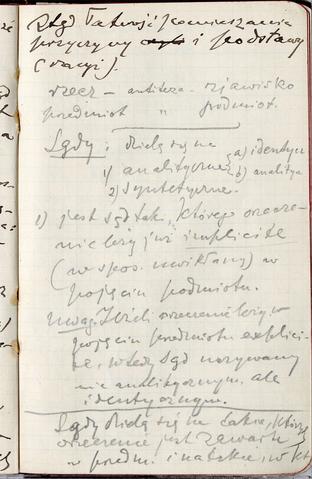 Stąd łatwość pomieszania
przyczyny i podstawy
(racyi).
rzecz – antiteza – zjawisko
przedmiot " podmiot.
Sądy: dzielą się na
1) analityczne a) identycz
b) analitycz
2) syntetyczne.
1) jest sąd taki, którego orzecze-
nie leży już implicite
(w spos. uwikłany) w
pojęciu podmiotu.
Uwaga. Jeżeli orzeczenie leży w
pojęciu przedmiotu explici-
te, wtedy sąd nazywamy
nie analitycznym, ale
identycznym.
Sądy dzielą się na takie, których
orzeczenie jest zawarte
w przedm. i na takie, w kt